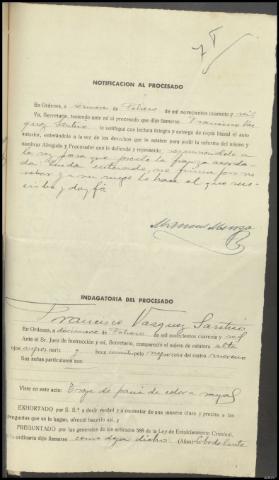 7
NOTIFICACION AL PROCESADO
En Ordenes, a de Febrero de mil novecientos cuarenta y
Yo, Secretario, teniendo ante mí al procesado que dijo llamarse Francisco Vaz
quez le notifiqué con lectura íntegra y entrega de copia literal el auto
anterior, enterándole a la vez de los derechos que le asisten para pedir la reforma del mismo y
nombrar Abogado y Procurador que le defienda y represente, requiriéndole a
la vez para que preste la fianza acorda-
da enterado, no firma por no
saber y a mi ruego lo hace el que sus-
cribe y doy fé
INDAGATORIA DEL PROCESADO
Francisco Vázquez
En Ordenes, a de Febrero de mil novecientos cuarenta y
Ante el Sr. Juez de Instrucción y mi, Secretario, compareció el sujeto de estatura alta
ojos negros nariz y boca pelo negro color del rostro moreno
Sus señas particulares son
Viste en este acto: Traje de pana de color a rayas
EXHORTADO por S. S.ª a decir verdad y a contestar de una manera clara y precisa a las
preguntas que se le hagan, ofreció hacerlo así; y
PREGUNTADO por las generales de los artículos 388 de la Ley de Enjuiciamiento Criminal,
ordinaria dijo llamarse como deja dicho (Alias)